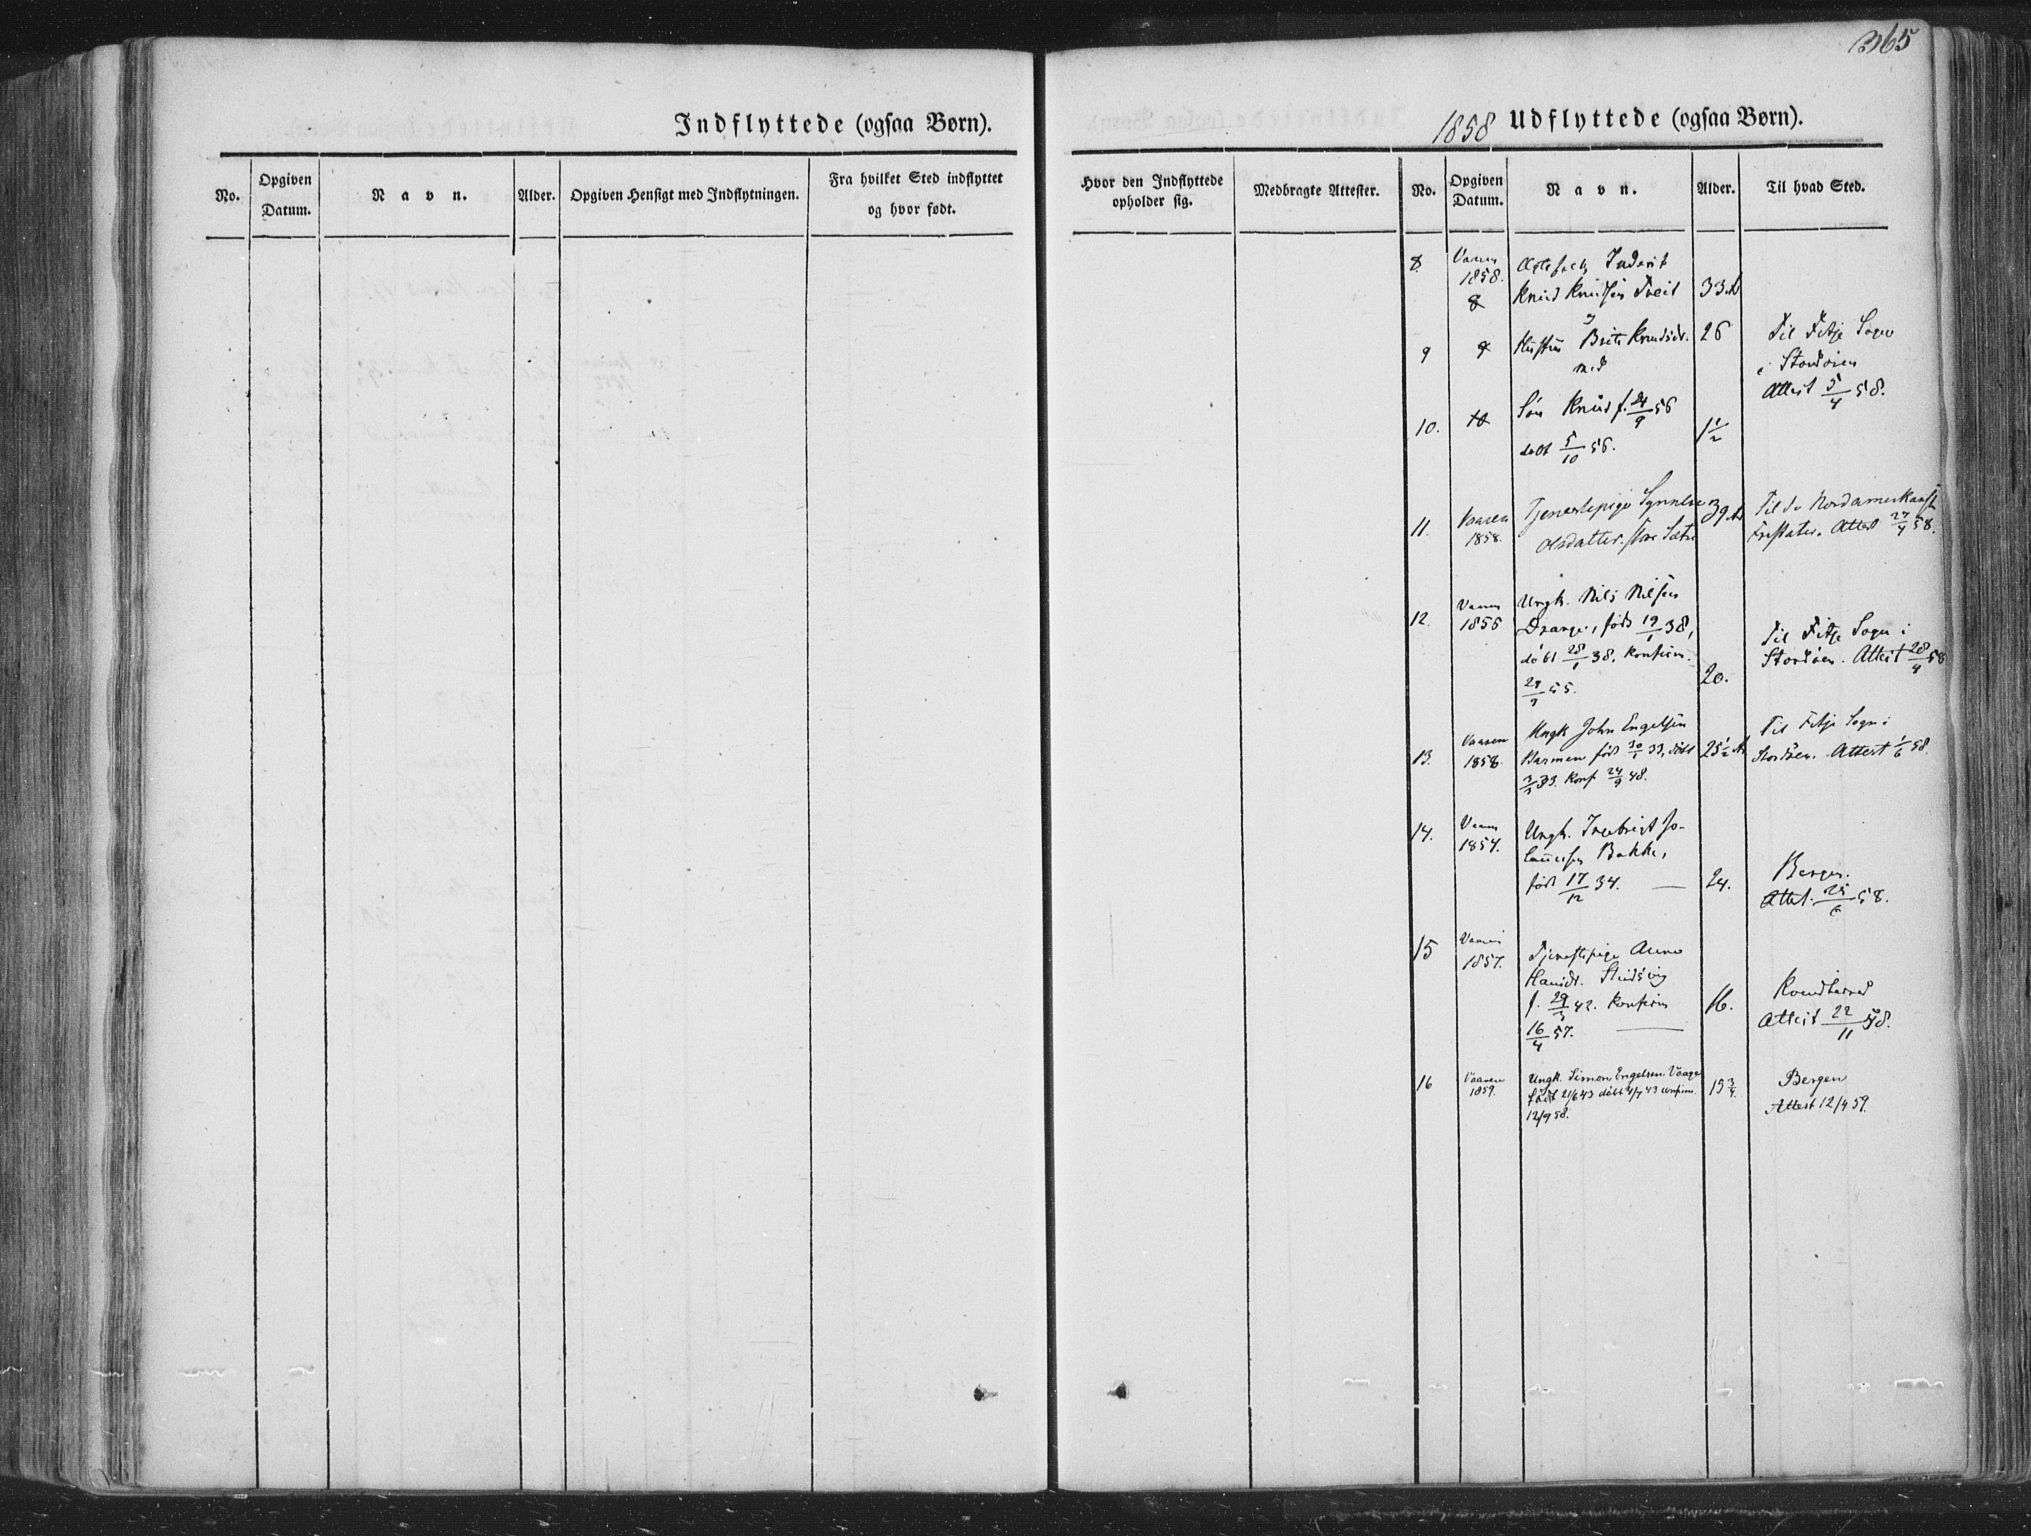 365
Indflyttede (ogsaa Børn).
No.
Opgiven
Datum.
Navn.
Alder.
Opgiven Hensigt med Indflytningen.
Fra hvilket Sted indflyttet
og hvor født.
1858 Udflyttede (ogsaa Børn).
Hvor den Indflyttede
opholder sig.
Medbragte Attester.
No.
Opgiven
Datum.
Navn.
Alder.
Til hvad Sted.
8
1858.
8
Knud Knudsen Tveit
33
9
9
Brite Knudsdr.
26
med
Til Fitje Sogn
i Stordøen
Attest 5/4 58.
10.
10
Søn Knud f. 24/9 56
døbt 5/10 56.
1 1/2
11.
Vaaren
1858.
Tjenestepige Synneve
Olsdatter
39
Til de Nordamerkansk
Fristater. Attest 27/4 58.
12.
Ungk. Nils Nilsen
Drange, født 19/1 38,
døbt 28/1 38. Konfirm.
20.
Til Fitje Sogn i
Stordøen. Attest
13.
Vaaren
1858
Ungk John Engelsen
født døbt
Konf 24/9 48.
25 1/2
Til Fitje Sogn i
Stordøen. Attest 1/6 58.
14.
1857.
Ungk. Bakke,
født 17/12 34.
24.
Bergen.
Attest 58.
15
1857.
Tjenestepige Anne
f. 29/3 42. Konfirm
16/4 57.
16.
Attest 22/11 58.
16
Vaaren
1859.
Ungk. Simon Engelsen Vaage
født 21/6 43 døbt 4/7 43 confirm.
12/9 58.
15 3/4
Bergen
Attest 12/4 59.